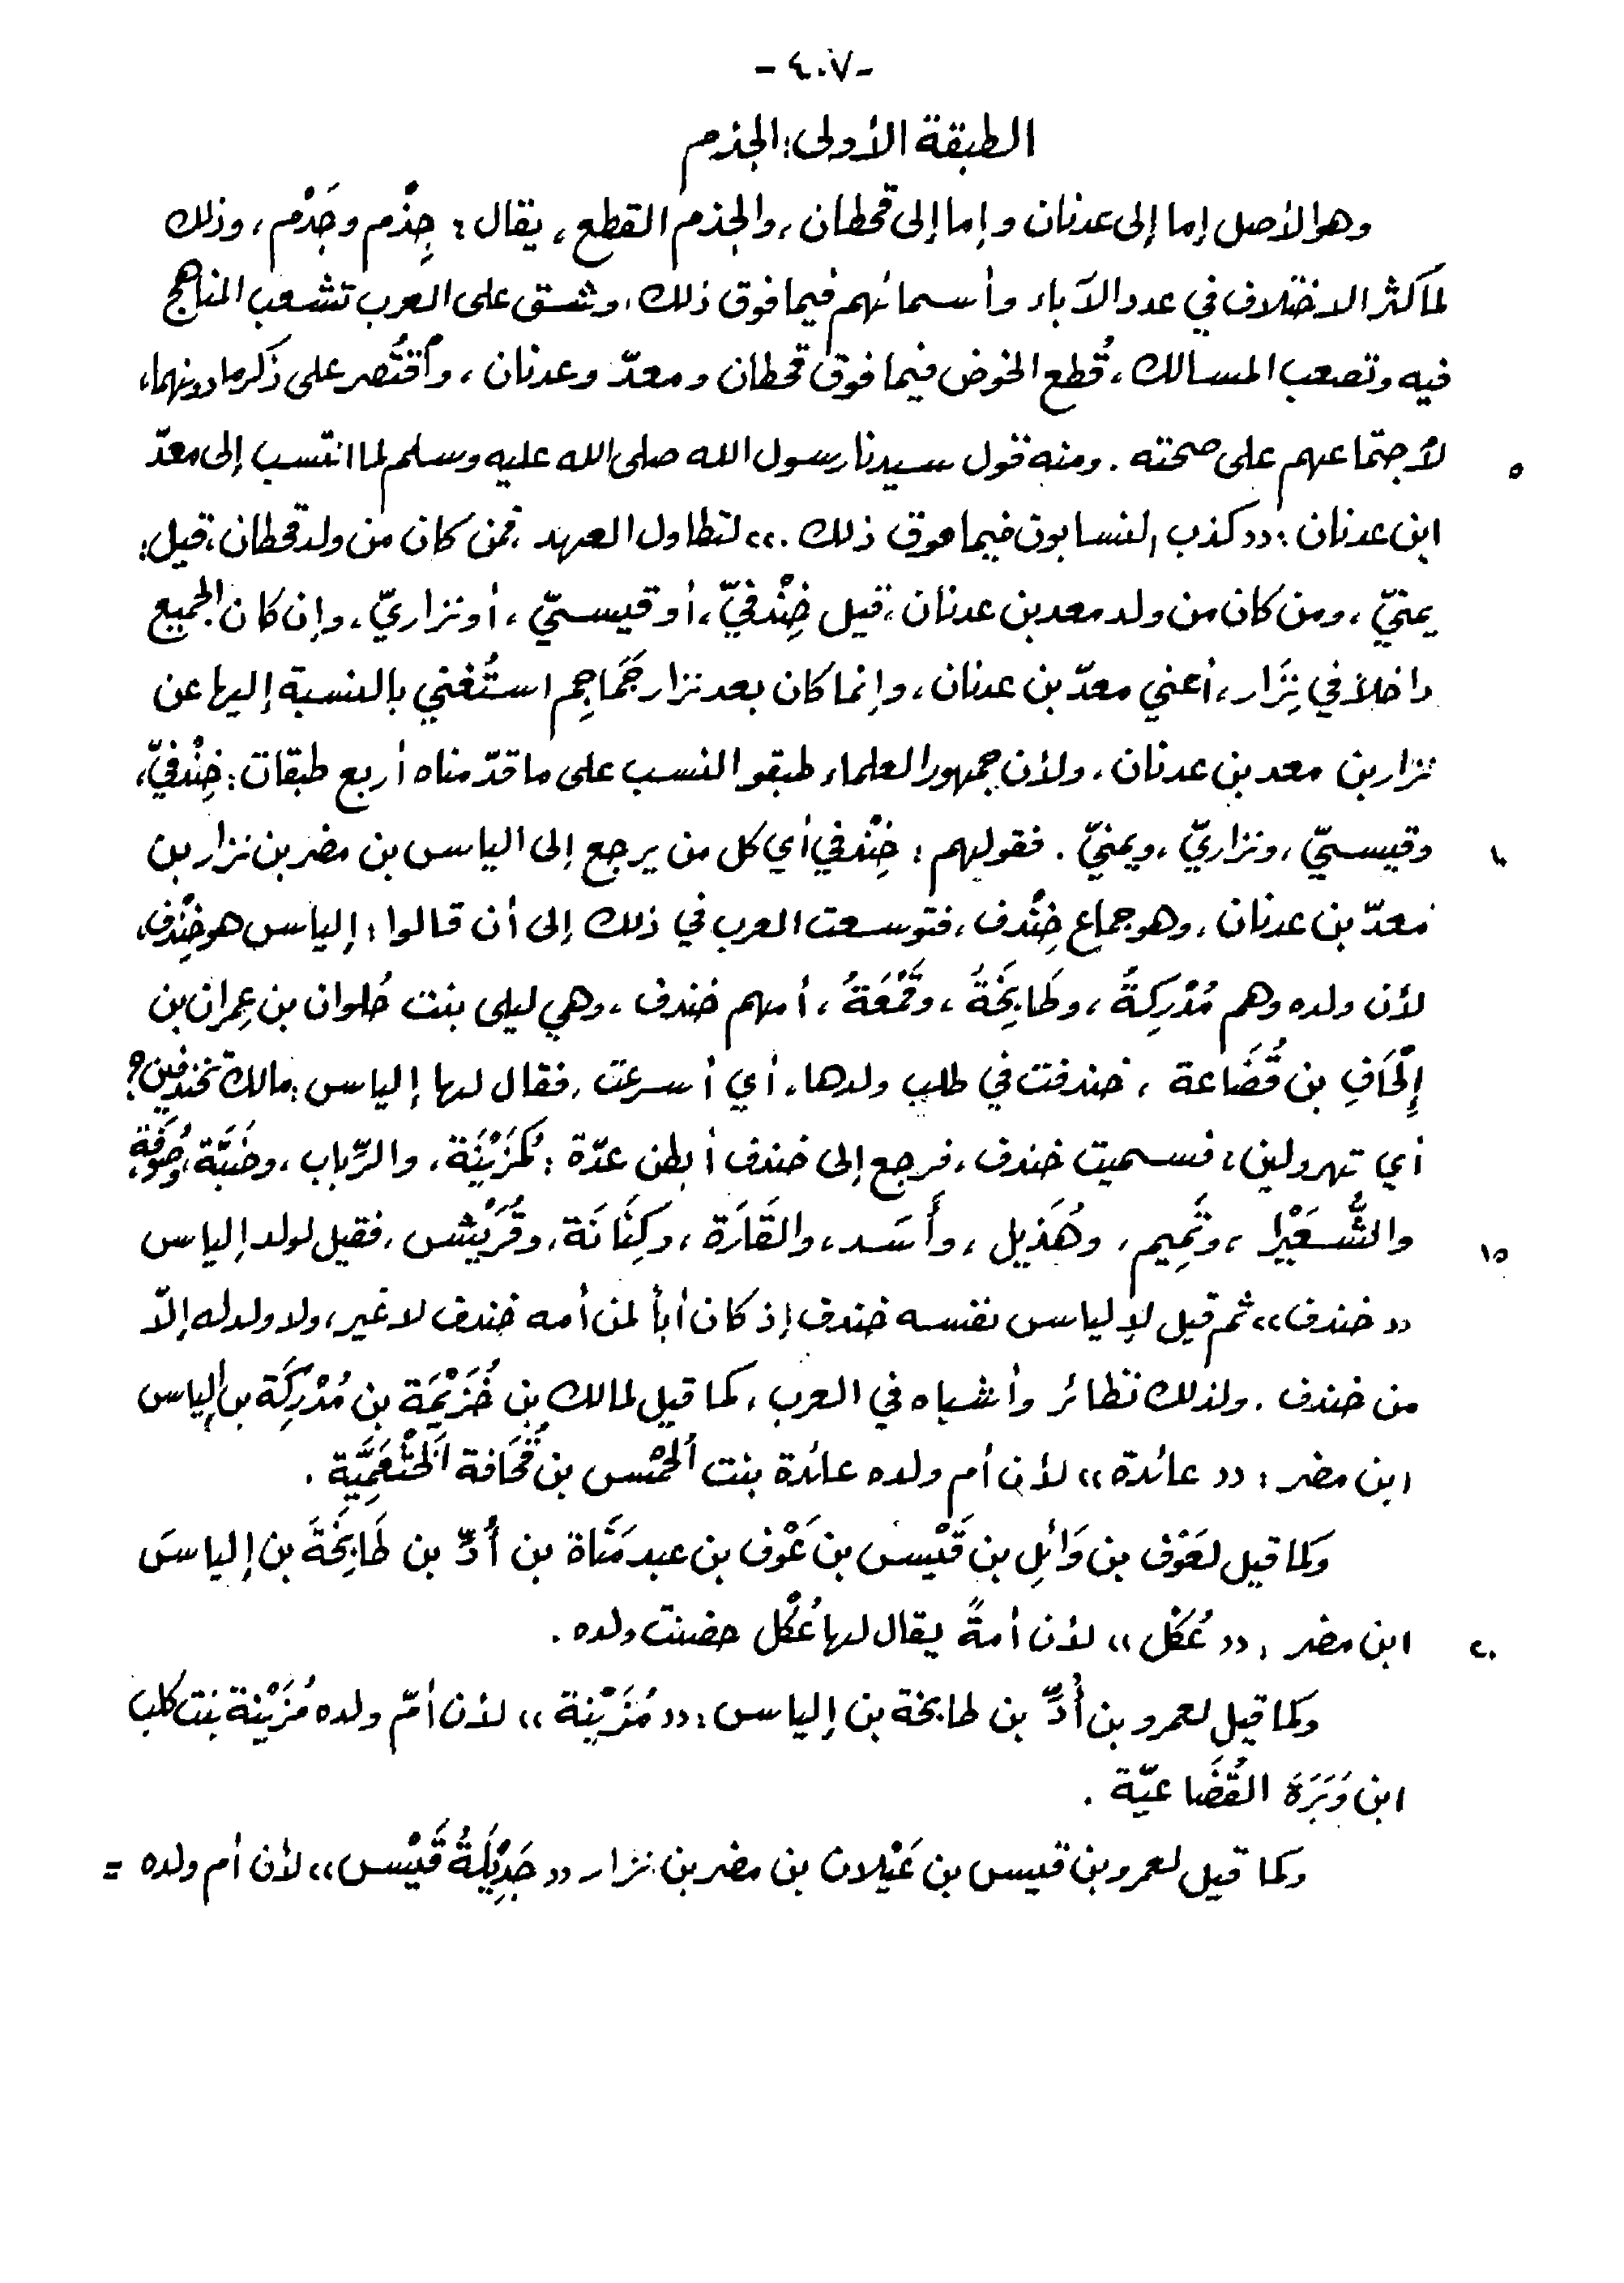 -٤٠٧-
الطبقة الأولى: الجذم
وهو الأصل إما إلى عدنان وإما إلى قحطان، والجذم القطع، يقال: جِذْم وجَذْم، وذلك
لما كثر الاختلاف في عدد الآباء وأسمائهم فيما فوق ذلك، وشق على العرب تشعب المناهج
فيه وتصعب المسالك، قُطع الخوض فيما فوق قحطان ومعدّ وعدنان، وأقتُصر على ذكر ما دونهما،
لأجتماعهم على صحته. ومنه قول سيدنا رسول الله صلى الله عليه وسلم لما انتسب إلى معدّ
٥
ابن عدنان: «كذب النسابون فيما فوق ذلك.» لتطاول العهد، فمن كان من ولد قحطان، قيل:
يمنيّ، ومن كان من ولد معد بن عدنان، قيل خِنْدفيّ، أو قيسيّ، أو نزاريّ، وإن كان الجميع
داخلاً في نِزَار، أعني معدّ بن عدنان، وإنما كان بعد نزار جَمَاجِم استُغني بالنسبة إليها عن
نزار بن معد بن عدنان، ولأن جمهور العلماء طبقو النسب على ما قدّمناه أربع طبقات: خِنْدفيّ،
وقيسيّ، ونزاريّ، ويمنيّ. فقولهم: خِنْدفي أي كل من يرجع إلى الياس بن مضر بن نزار بن
١٠
معدّ بن عدنان، وهو جماع خِنْدف، فتوسعت العرب في ذلك إلى أن قالوا: إلياس هو خِنْدِف،
لأن ولده وهم مُدْرِكةُ، وطَابِخَةُ، وقَمْعَةُ، أمهم خندف، وهي ليلى بنت حُلوان بن عِمران بن
إلْحَافِ بن قُضَاعة، خندفت في طلب ولدها، أي أسرعت، فقال لها إلياس: مالك تخندفين؟
أي تهرولين، فسميت خندف، فرجع إلى خندف أبطن عدّة: كمُزَيْنَة، والرِّباب، وضَبَّة، وصُوفَة،
والشُّعَيْرا، وتَمِيم، وهُذَيل، وأَسَد، والقَارَة، وكِنَانَة، وقُرَيْش، فقيل لولد إلياس
١٥
«خندف» ثم قيل لإلياس نفسه خندف إذ كان أباً لمن أمه خندف لا غير، ولا ولد له إلاّ
من خندف. ولذلك نظائر وأشباه في العرب، كما قيل لمالك بن خُزَيْمَة بن مُدْرِكَة بن إلياس
ابن مضر: «عائدة» لأن أم ولده عائدة بنت ألخمْس بن قُحَافة الخَثْعَمِيَّة.
وكما قيل لعَوْف بن وَائِل بن قَيْس بن عَوْف بن عبد مَنَاة بن أُدِّ بن طَابِخَةَ بن إلياسَ
ابن مضر: «عُكْل» لأن أمةً يقال لها عُكْل حضنت ولده.
٢٠
وكما قيل لعمرو بن أُدِّ بن طابخة بن إلياس: «مُزَيْنة» لأن أمّ ولده مُزَيْنة بنت كلب
ابن وَبَرَة القُضَاعيّة.
وكما قيل لعمرو بن قيس بن عَيْلان بن مضر بن نزار «جَدِيْلَةُ قَيْس» لأن أم ولده =